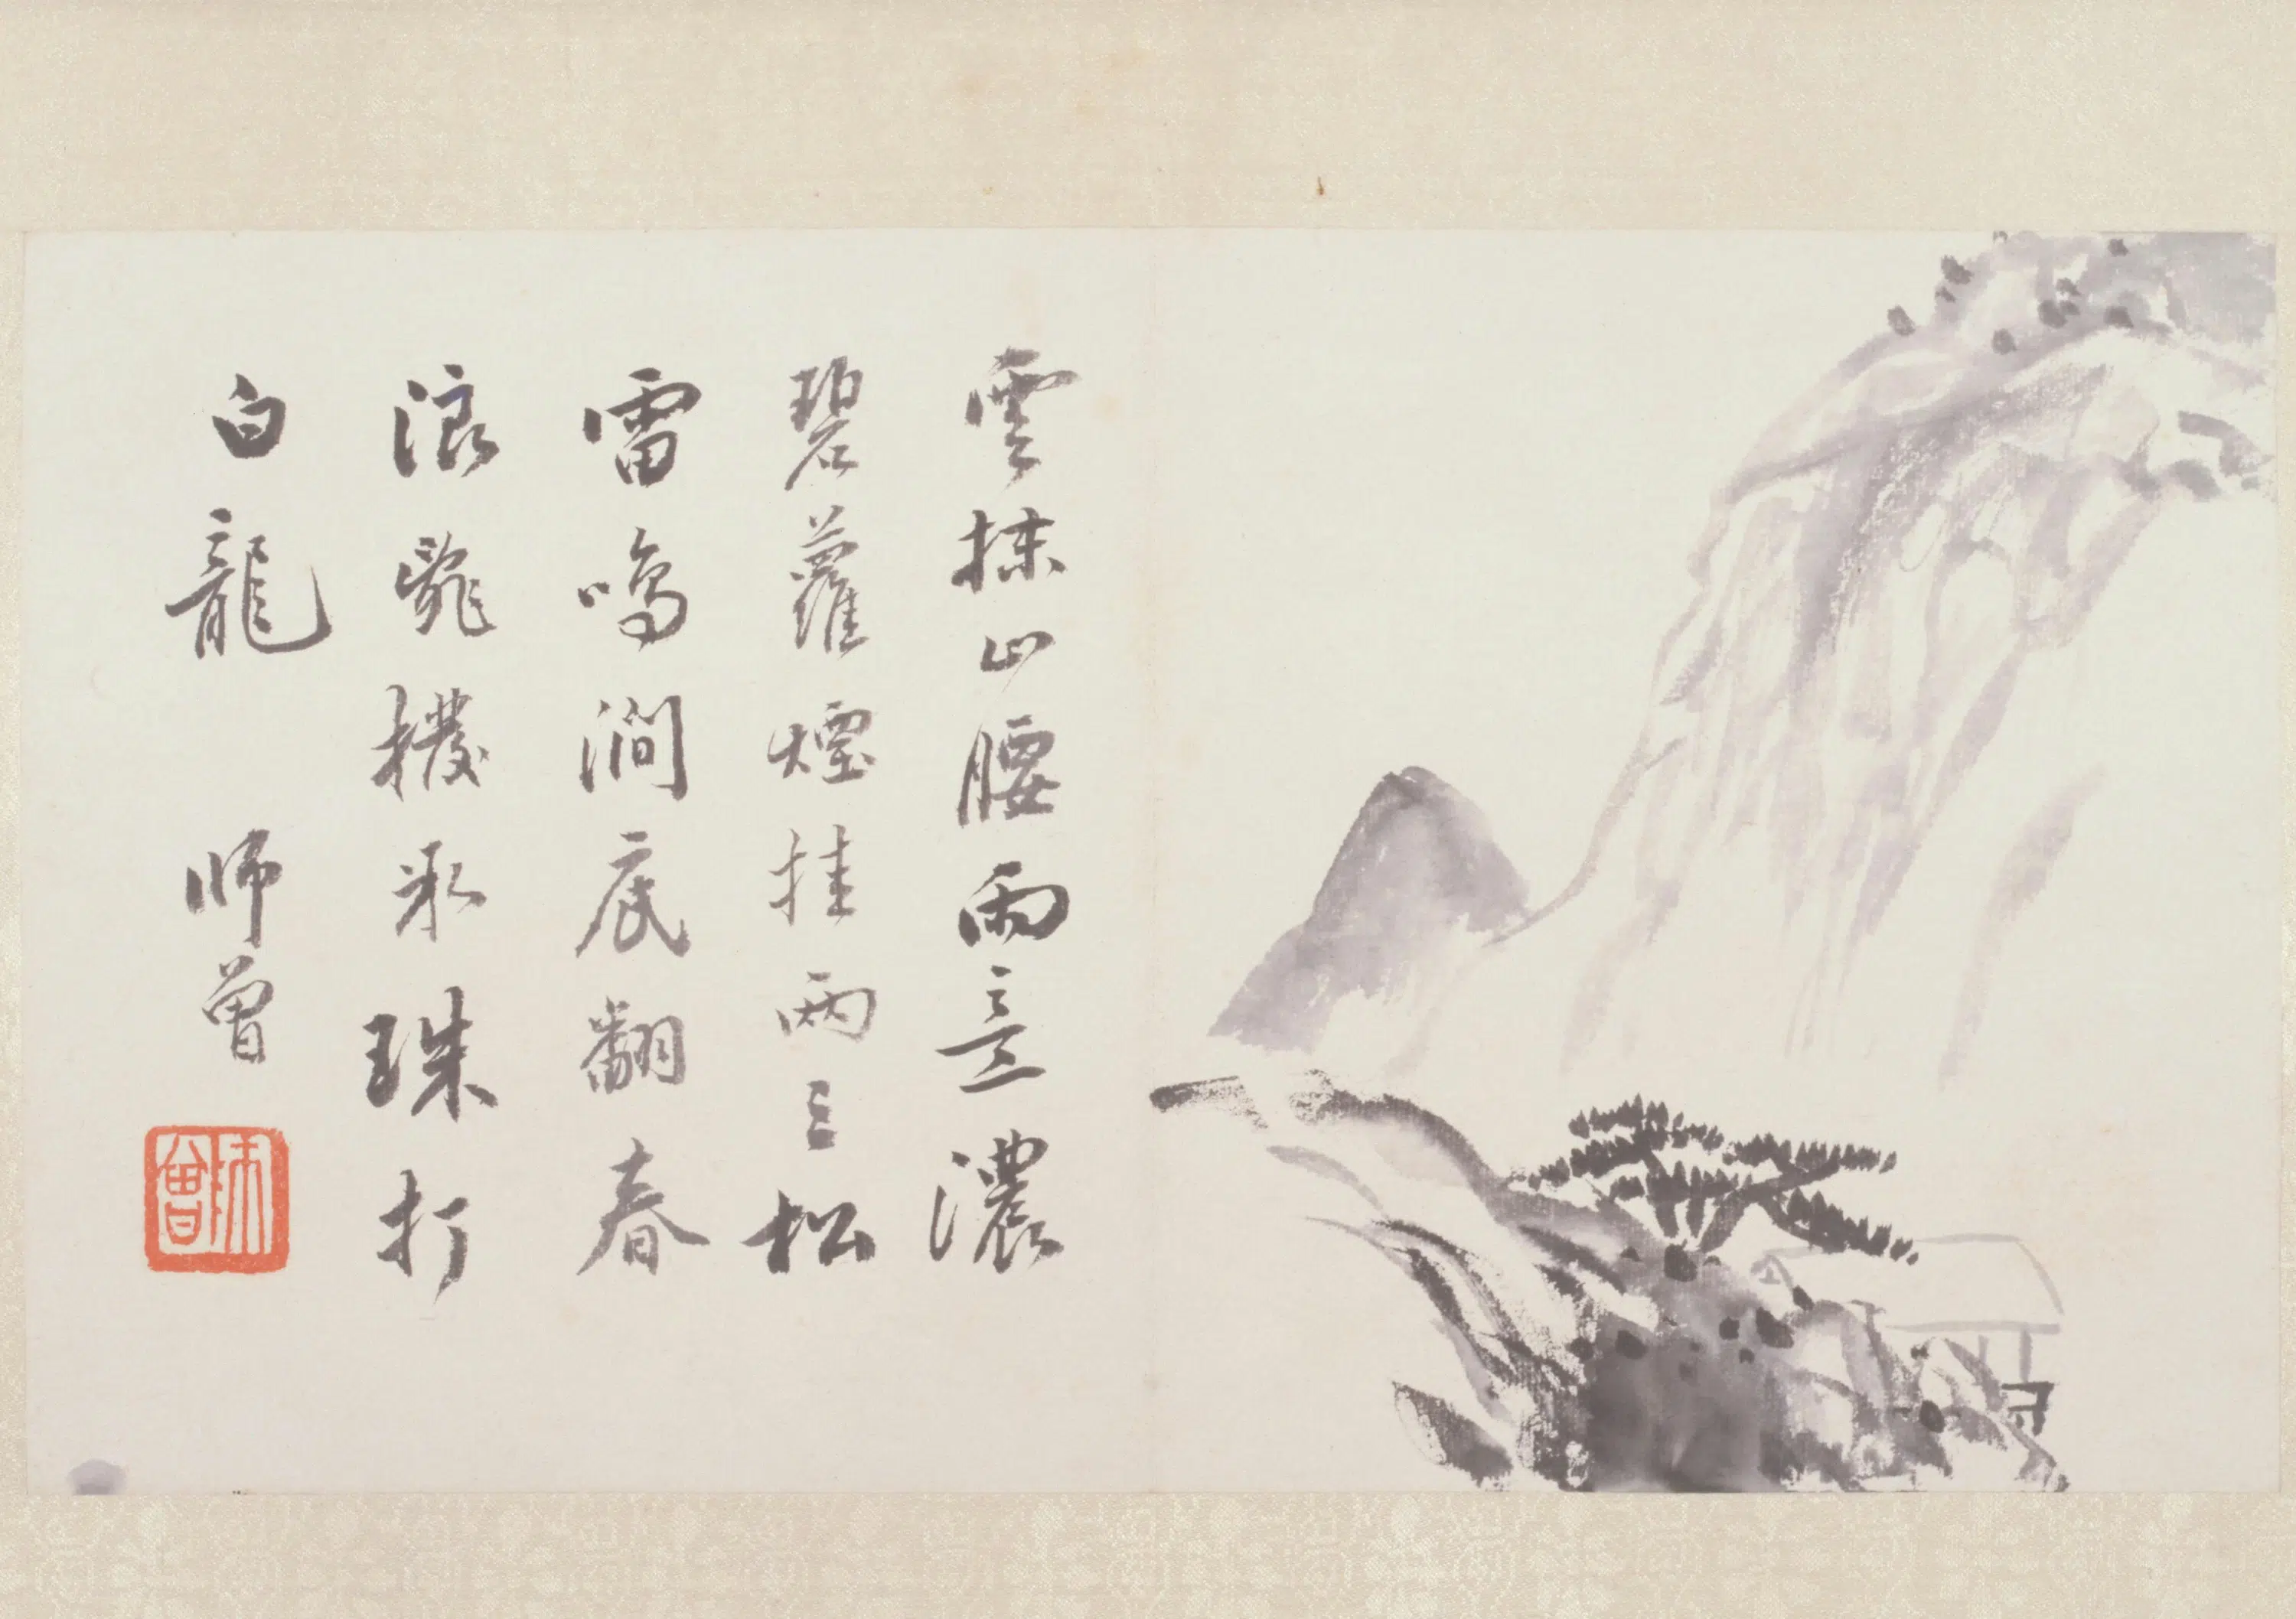 雲抹山腰雨意濃
碧蘿煙挂兩三松
雷鳴澗底翻春
浪撥氷珠打
白龍 師曾
師曾